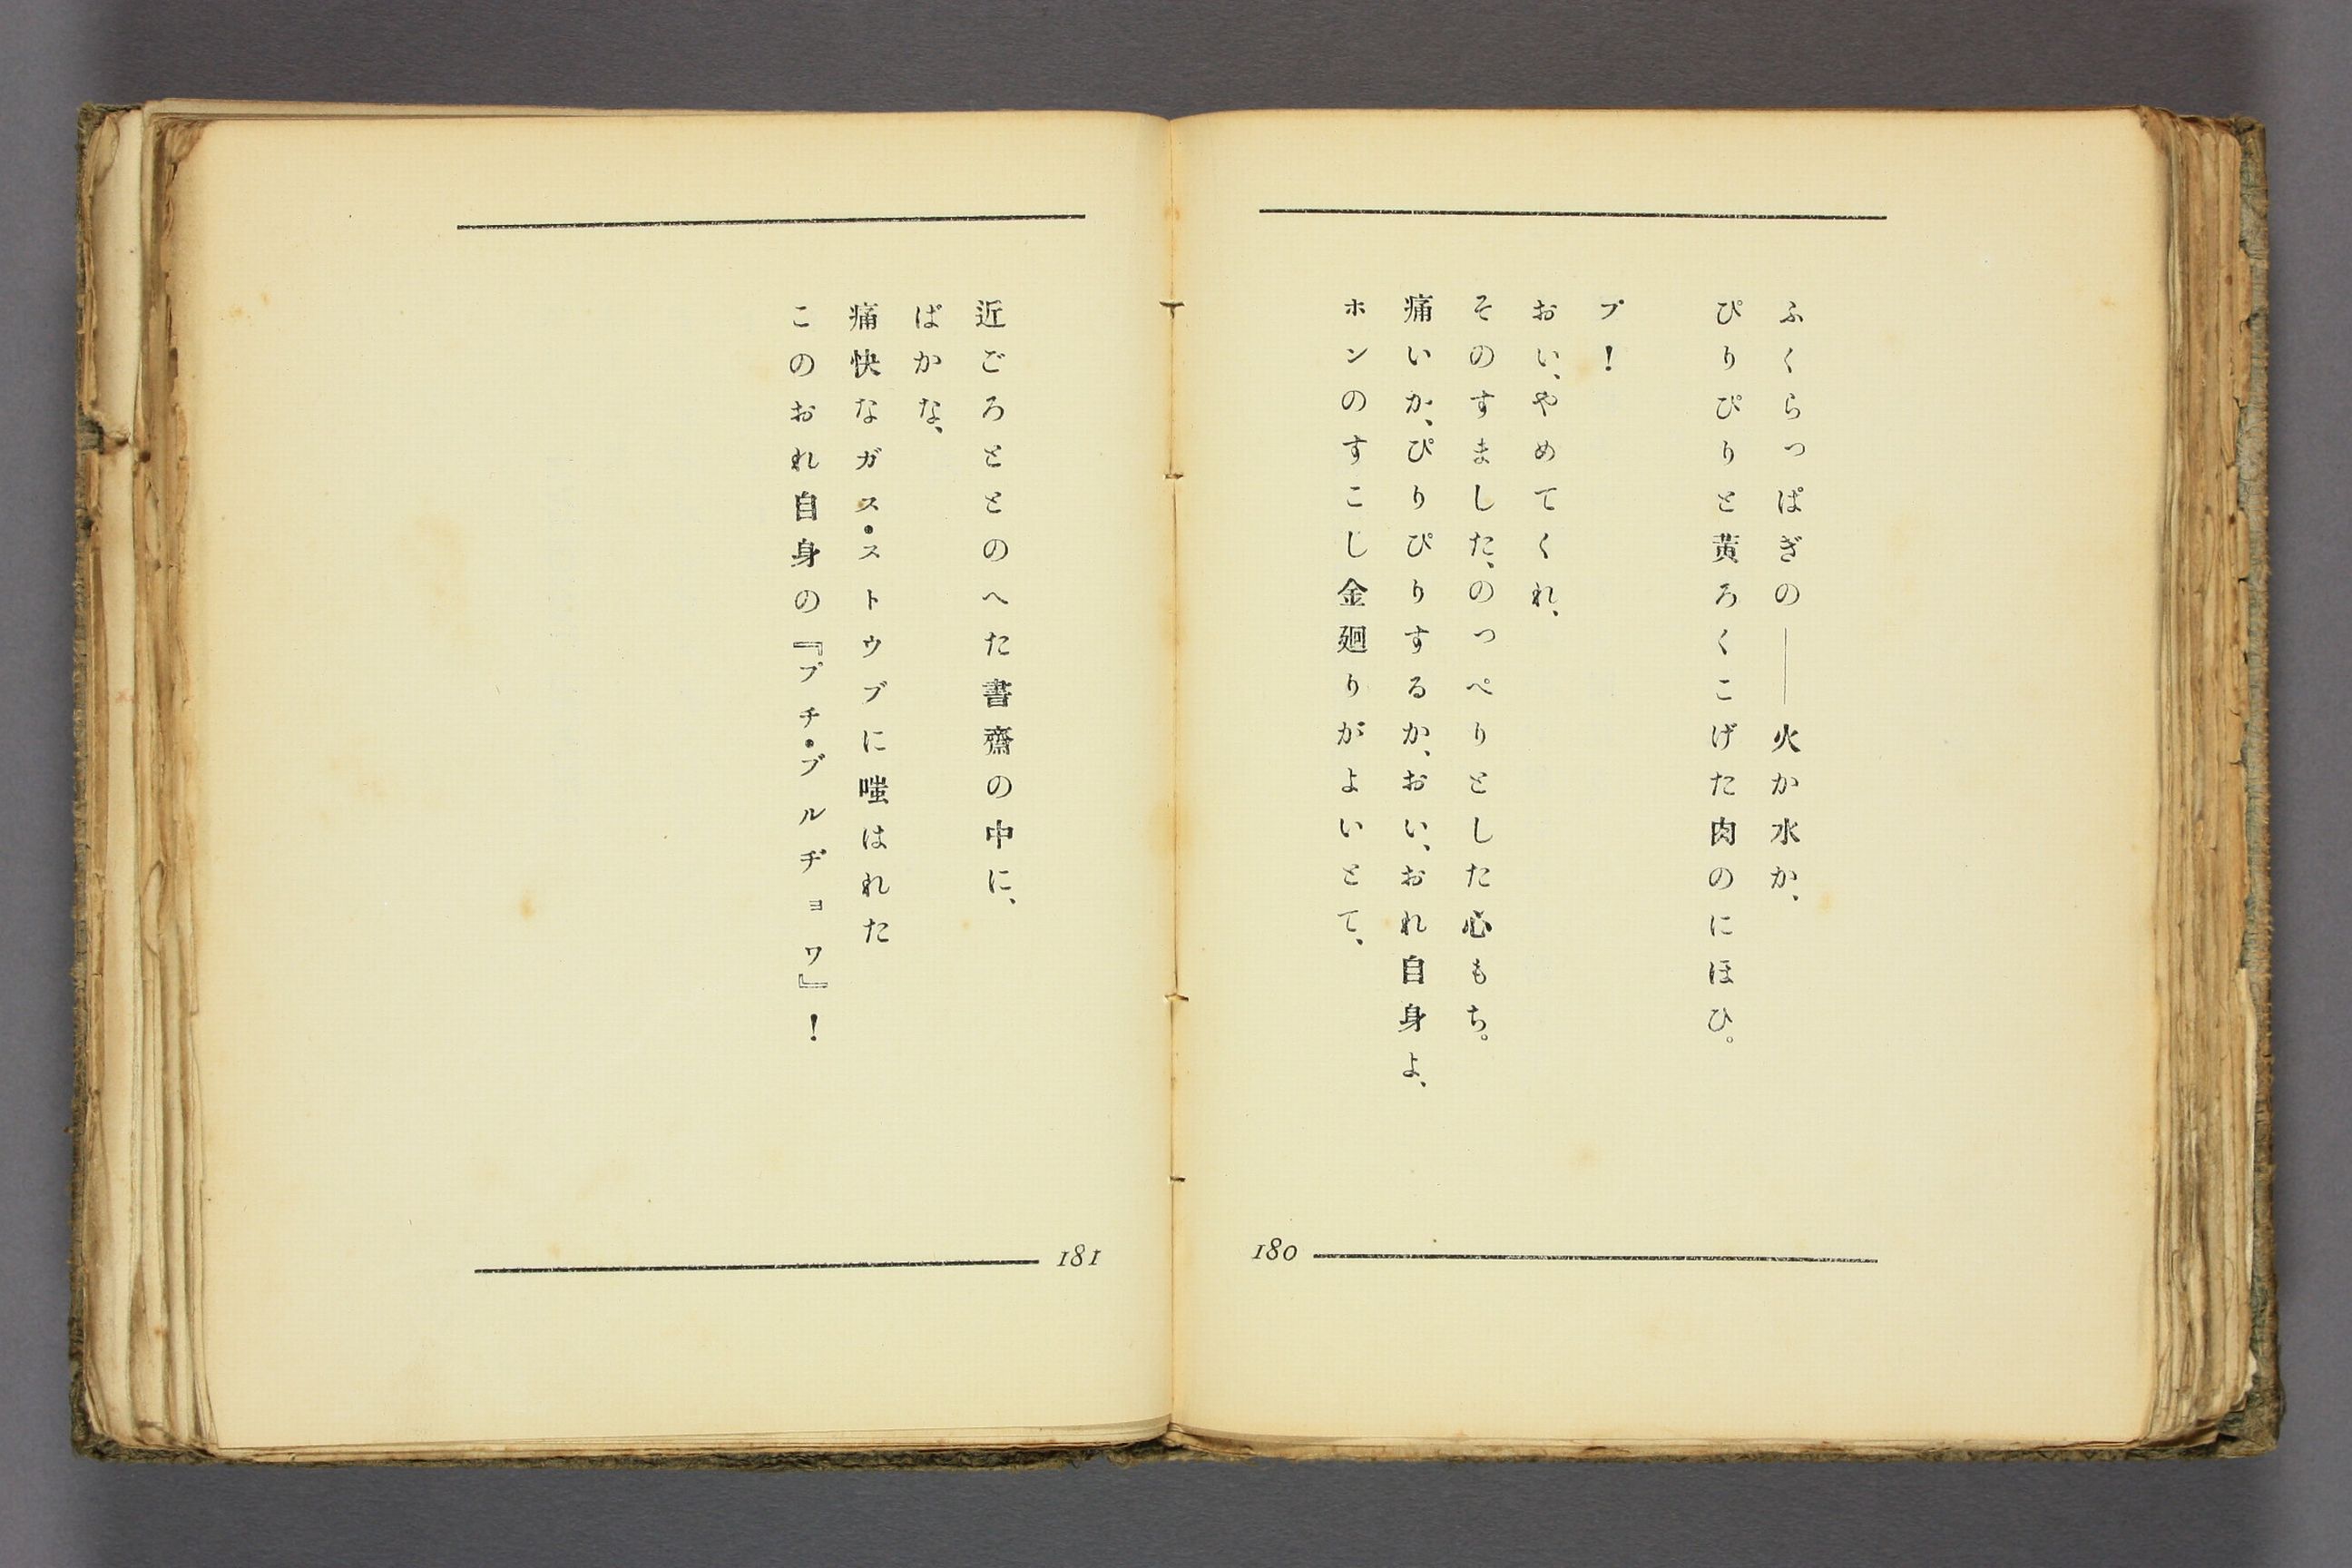 ふくらっぱぎの――火か水か、
ぴりぴりと黄ろくこげた肉のにほひ。
プ！
おい、やめてくれ、
そのすました、のっぺりとした心もち。
痛いか、ぴりぴりするか、おい、おれ自身よ、
ホンのすこし金廻りがよいとて、
180
近ごろととのへた書齋の中に、
ばかな、
痛快なガス・ストウブに嗤はれた
このおれ自身の『プチ・ブルヂョワ』！
181